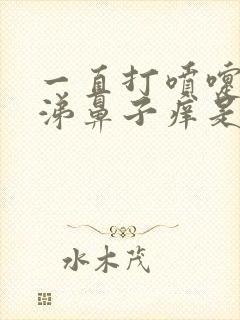 一直打喷嚏
涕鼻子痒是
水木茂